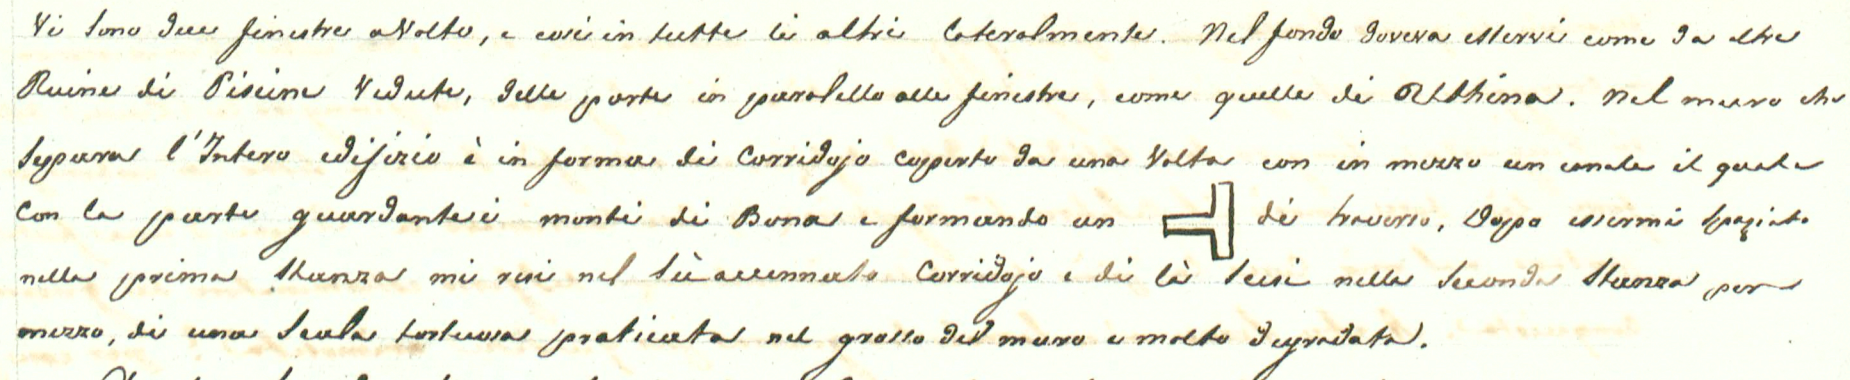 Vi sono due finestre a Volto, e cosi in tutte le altri Lateralmente. Nel fondo doveva esservi come da altre
Ruine di Piscine Vedute, delle porte in paralello alle finestre, come quelle di Uthina. Nel muro che
separa l'Intero edifizio è in forma di Corridojo coperto da una Volta con in mezzo un canale il quale
Con la parte guardante i monti di Bona e formando un di traverso, Dopo essermi spaziato
nella prima Stanza mi resi nel sù accennato Corridojo e di là scesi nella Seconda Stanza per
mezzo, di una Scala tortuosa praticata nel grosso del muro e molto degradata.